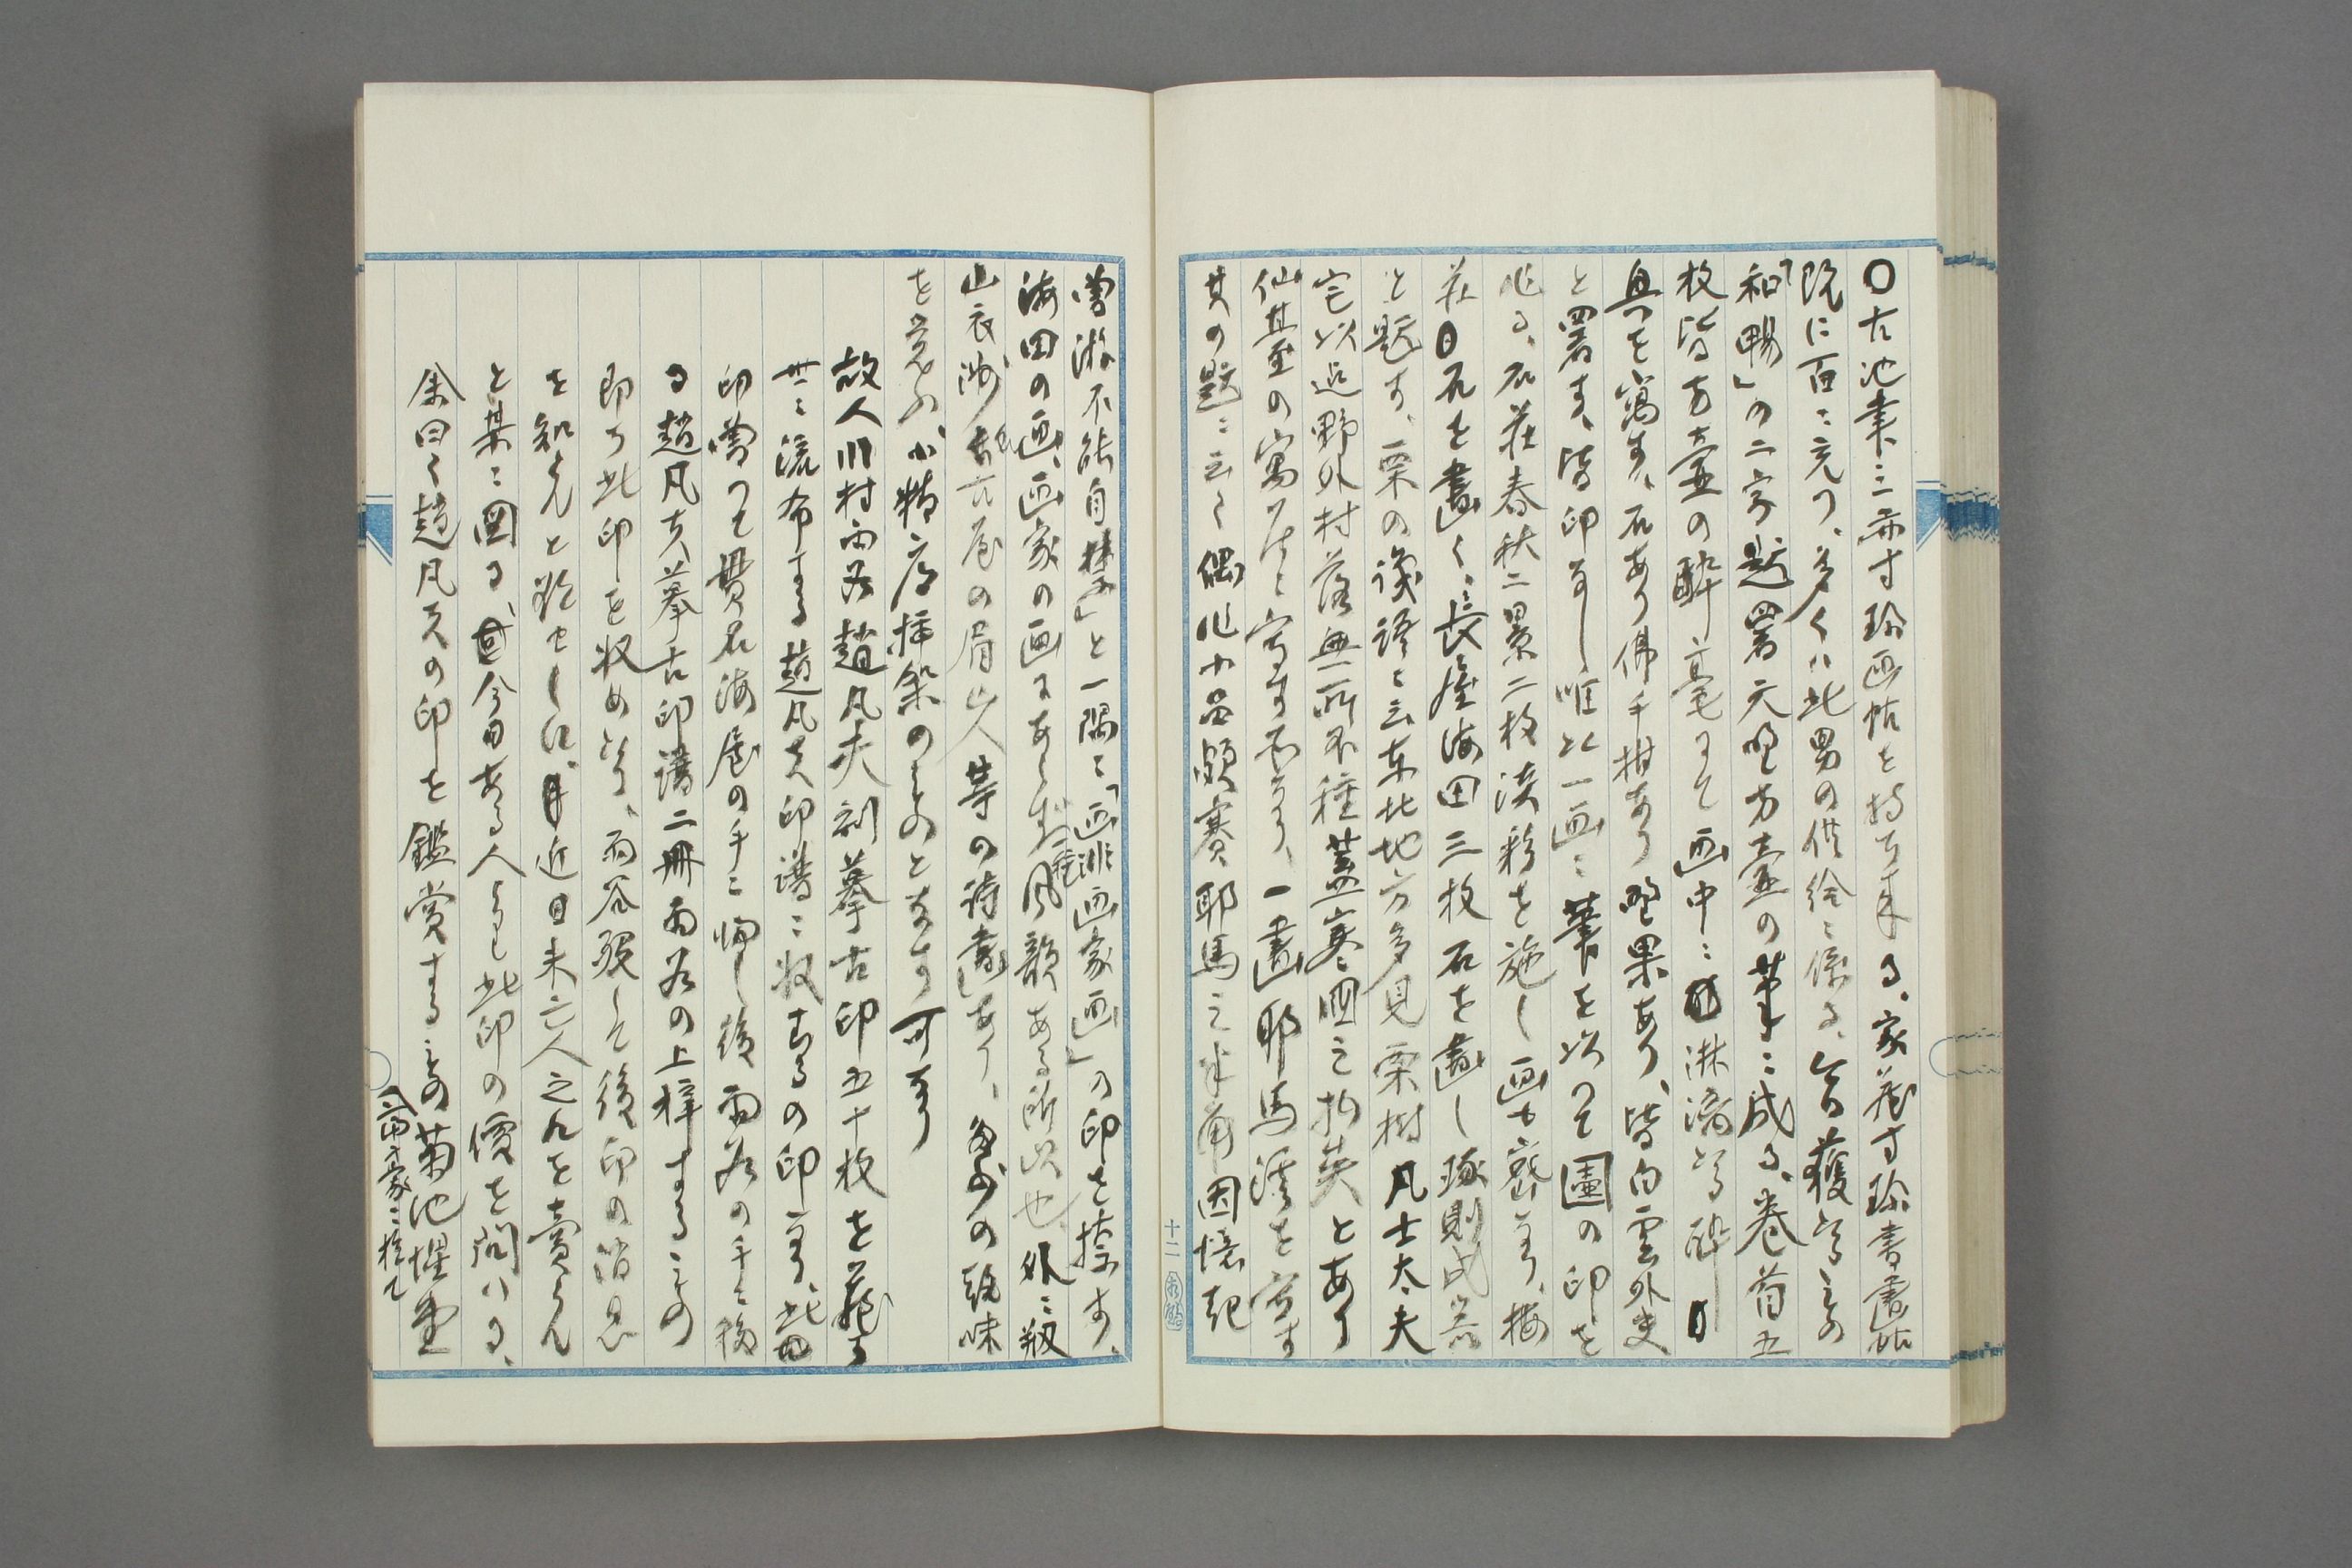 〇古池書三、両寸珍画帖を持ち来る、家蔵寸珍書画帖
既に百に充つ、多くハ此男の供給に係る、今獲る
「和暢」の二字題署天野方壷の筆に成る、巻首五
枚皆方壷の酔毫にて画中に淋漓たる酔
興を寓す、石あり佛手柑あり野果あり、皆白雲外史
と署す、皆印なし唯此一画に筆を以つて圖の印を
作る、石荘春秋二景二枚淡彩を施し画尤密なり、梅
荘石を畫く、長座海田三枚石を畫し琢則成器
と題す、栗の讃語に云東北地方多見栗樹凡士太夫
宅以近野外村落無所不種蓋寒国之
とあり
仙基の寓居を写すなり、一畫耶馬渓を写す
其の題に云く偶作小品頗賽耶馬之半角因憶起
曽游不能自禁」と一隅に「画非画家画」の印を捺す、
海田の画、画家の画にあらず風韻ある所以也、外に
山衣洲古屋の眉山人等の詩畫あり、多少の趣味
を覚ふ、小精廬挿架のものとなす可なり
故人川村雨谷趙凡夫刻摹古印五十枚を蔵す
世に流布する趙凡夫印譜に収むるの印なり、此
印曽つて貫名海屋の手に帰し後雨谷の手に移
る趙凡夫摹古印譜二冊雨谷の上梓するもの
即ち此印を収めたる、雨谷歿して後印の消息
を知らんと欲せしに、近日未亡人之れを賣らん
と某に図る、今日ある人より此印の價を問ハる、
余曰く趙凡夫の印を鑑賞するもの菊池惺堂